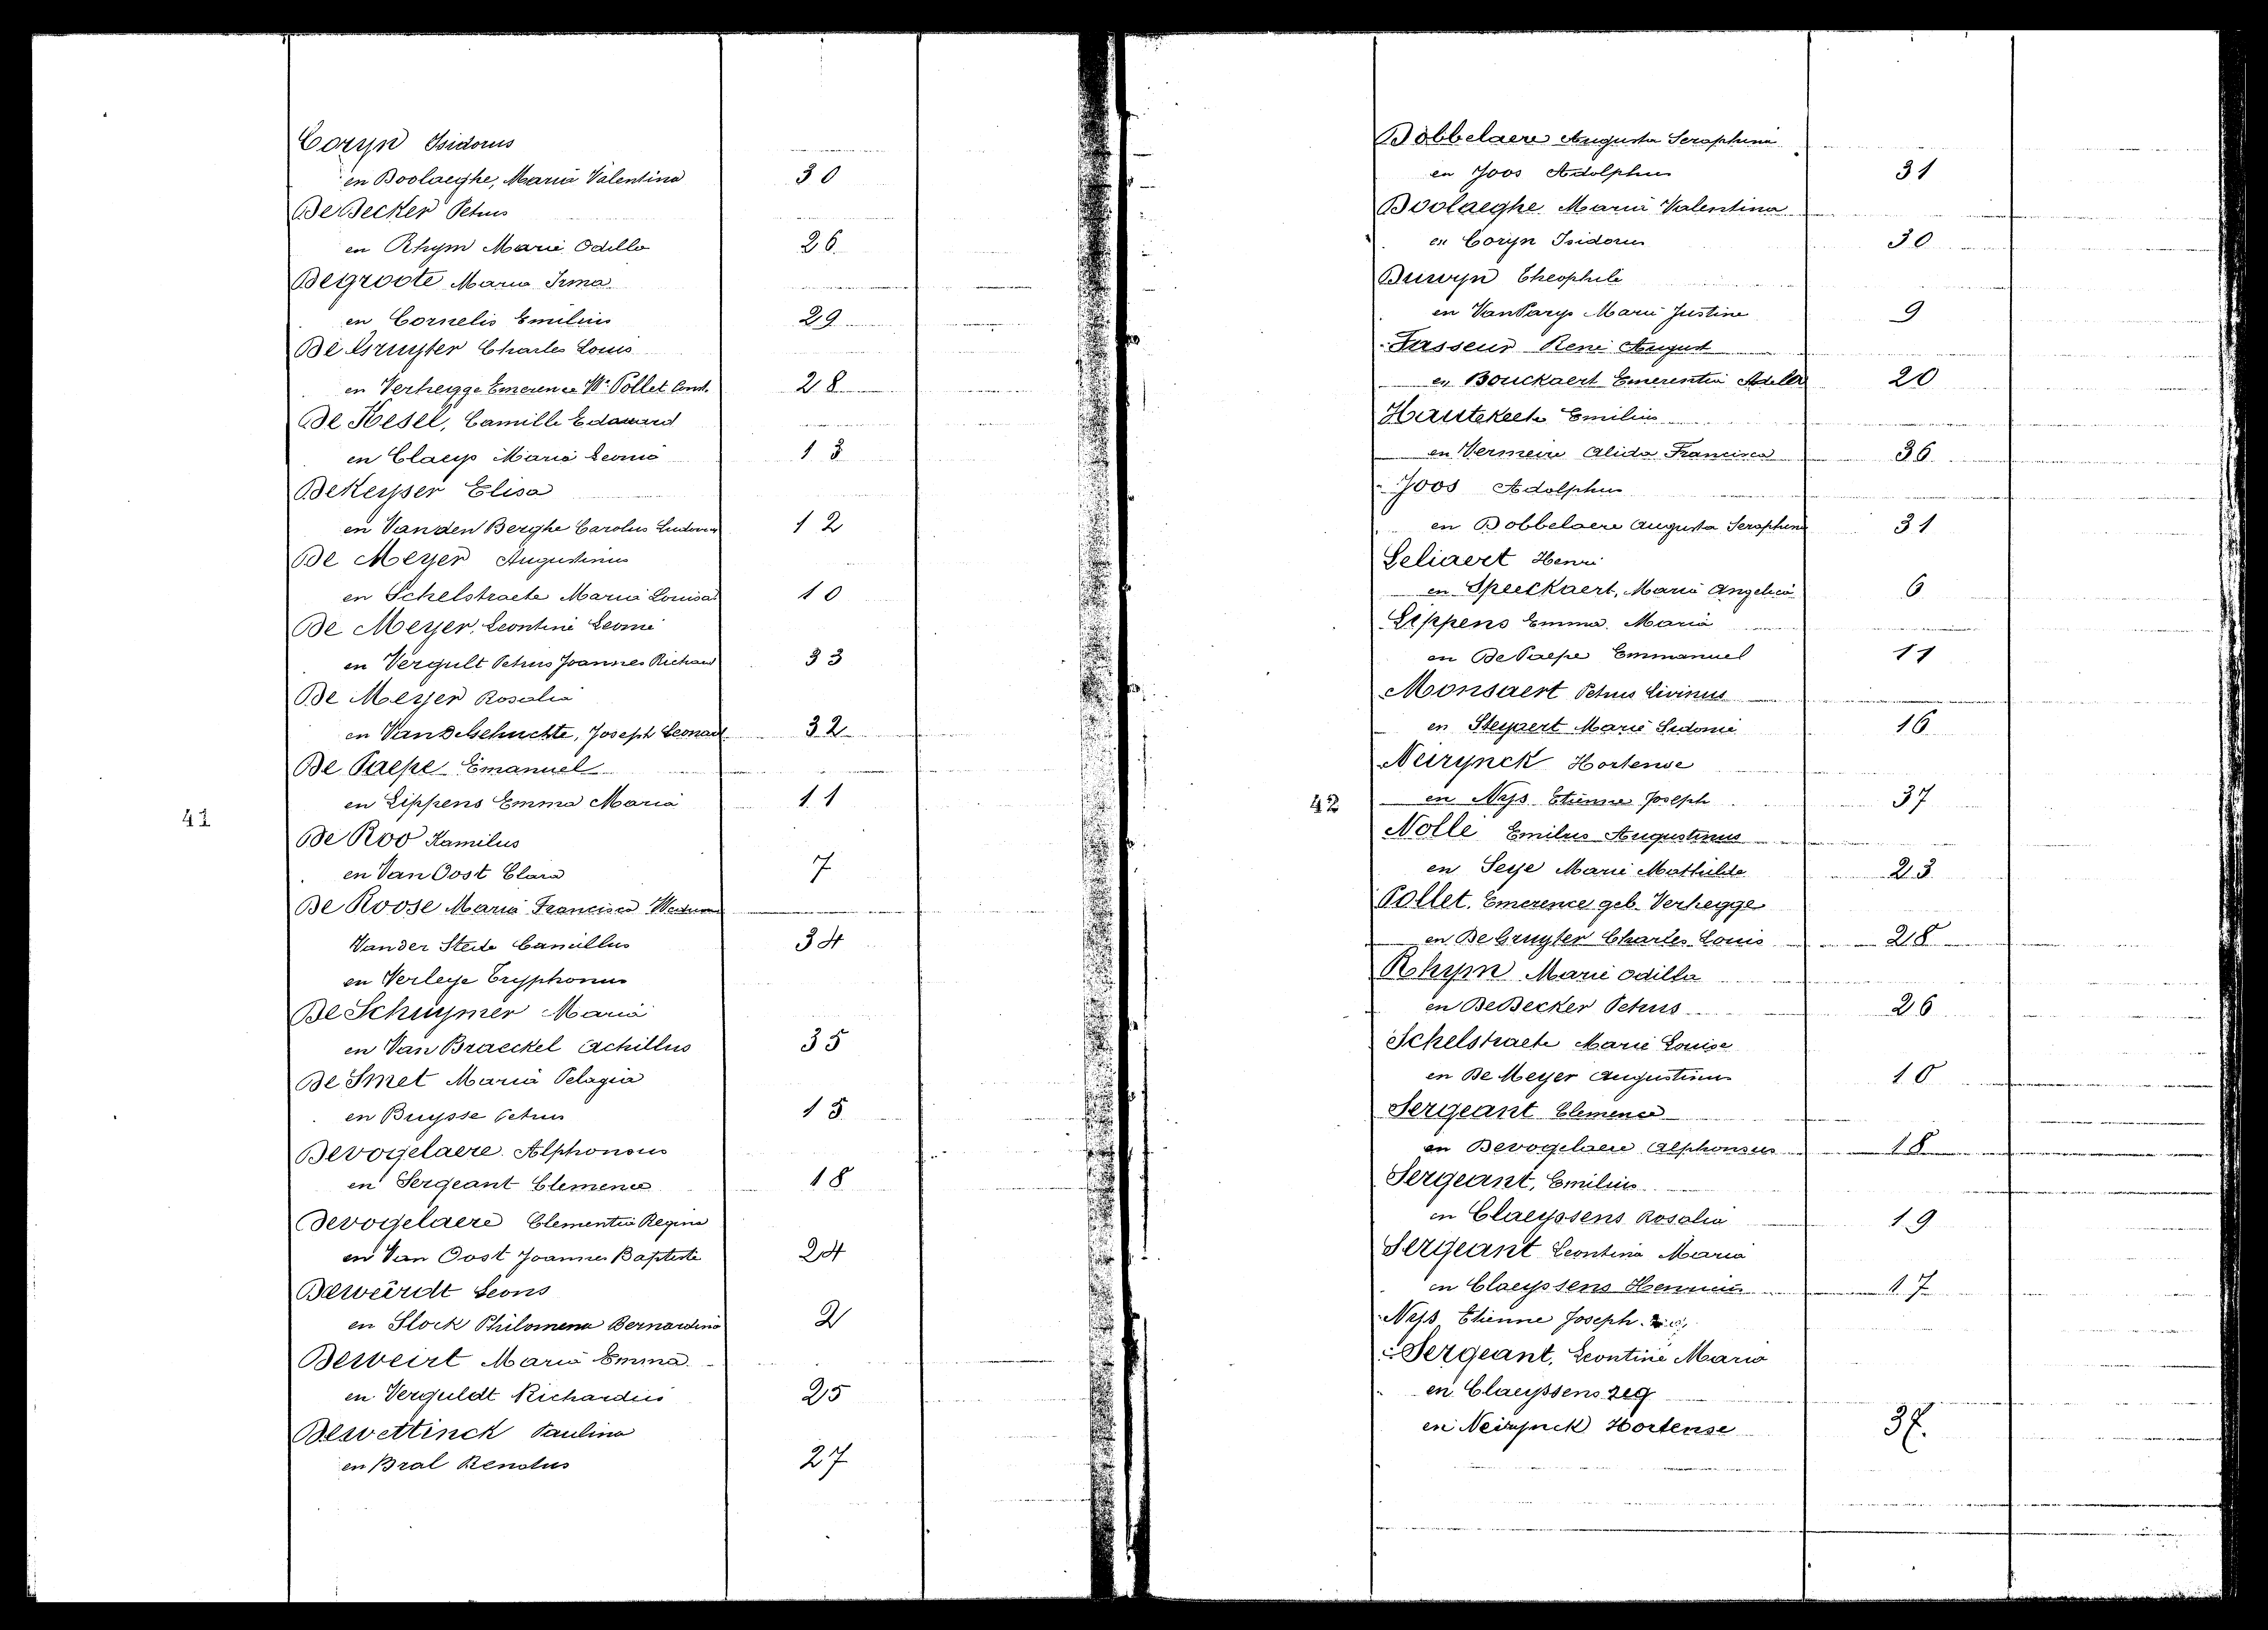 Coryn Isidorus
en Doolaeghe, Maria Valentina 30
De Decker Petrus
en Rhym Marie Odille 26
Degroote Maria Irma
en Cornelis Emilius 29
De Gruyter Charles Louis
en Verhegge Emerence Wᵉ Pollet Const. 28
De Kesel, Camille Edouard
en Claeys Marie Leonie 13
DeKeyser Elisa
en Vanden Berghe Carolus Ludovicus 12
De Meyer Augustinus
en Schelstraete Maria Louisa 10
De Meyer, Leontine Leonie
en Vergult Petrus Joannes Richard 33
De Meyer Rosalie
en VandeGehuchte, Joseph Leonard 32
De Paepe Emanuel
en Lippens Emma Maria 11
41
De Roo Kamilus
en Van Oost Clara 7
De Roose Maria Francisca
Vander Stede Camillus 34
en Verleye Tryphonus
De Schuymer Maria
en Van Braeckel Achillus 35
De Smet Maria Pelagia
en Buysse Petrus 15
Devogelaere Alphonsus
en Sergeant Clemence 18
Devogelaere Clementia Regina
en Van Oost Joannes Baptiste 24
Deweirdt Leons
en Slock Philomena Bernardina 2
Deweirt Maria Emma
en Verguldt Richardus 25
Dewettinck Paulina
en Bral Renatus 27
Dobbelaere Augusta Seraphina
en Joos Adolphus 31
Doolaeghe Maria Valentina
en Coryn Isidorus 30
Duwyn Theophile
en VanParys Marie Justine 9
Fasseur René August
en Bouckaert Emerentia Adella 20
Hautekeete Emilius
en Vermeire Alida Francisca 36
Joos Adolphus
en Dobbelaere Augusta Seraphina 31
Leliaert Henri
en Speeckaert, Maria Angelica 6
Lippens Emma Maria
en De Paepe Emmanuel 11
Monsaert Petrus Livinus
en Steyaert Marie Sidonie 16
Neirynck Hortense
42 en Nys Etienne Joseph 37
Nolle Emilus Augustinus
en Seye Marie Mathilde 23
Pollet. Emerence geb. Verhegge
en De Gruyter Charles Louis 28
Rhym Marie Odilla
en DeDecker Petrus 26
Schelstraete Marie Louise
en De Meyer Augustinus 10
Sergeant Clemence
en Devogelaere Alphonsus 18
Sergeant, Emilius
en Claeyssens Rosalia 19
Sergeant Leontina Maria
en Claeyssens 17
Nys Etienne Joseph
Sergeant, Leontine Maria
en Claeyssens zeg
en Neirynck Hortense 37.